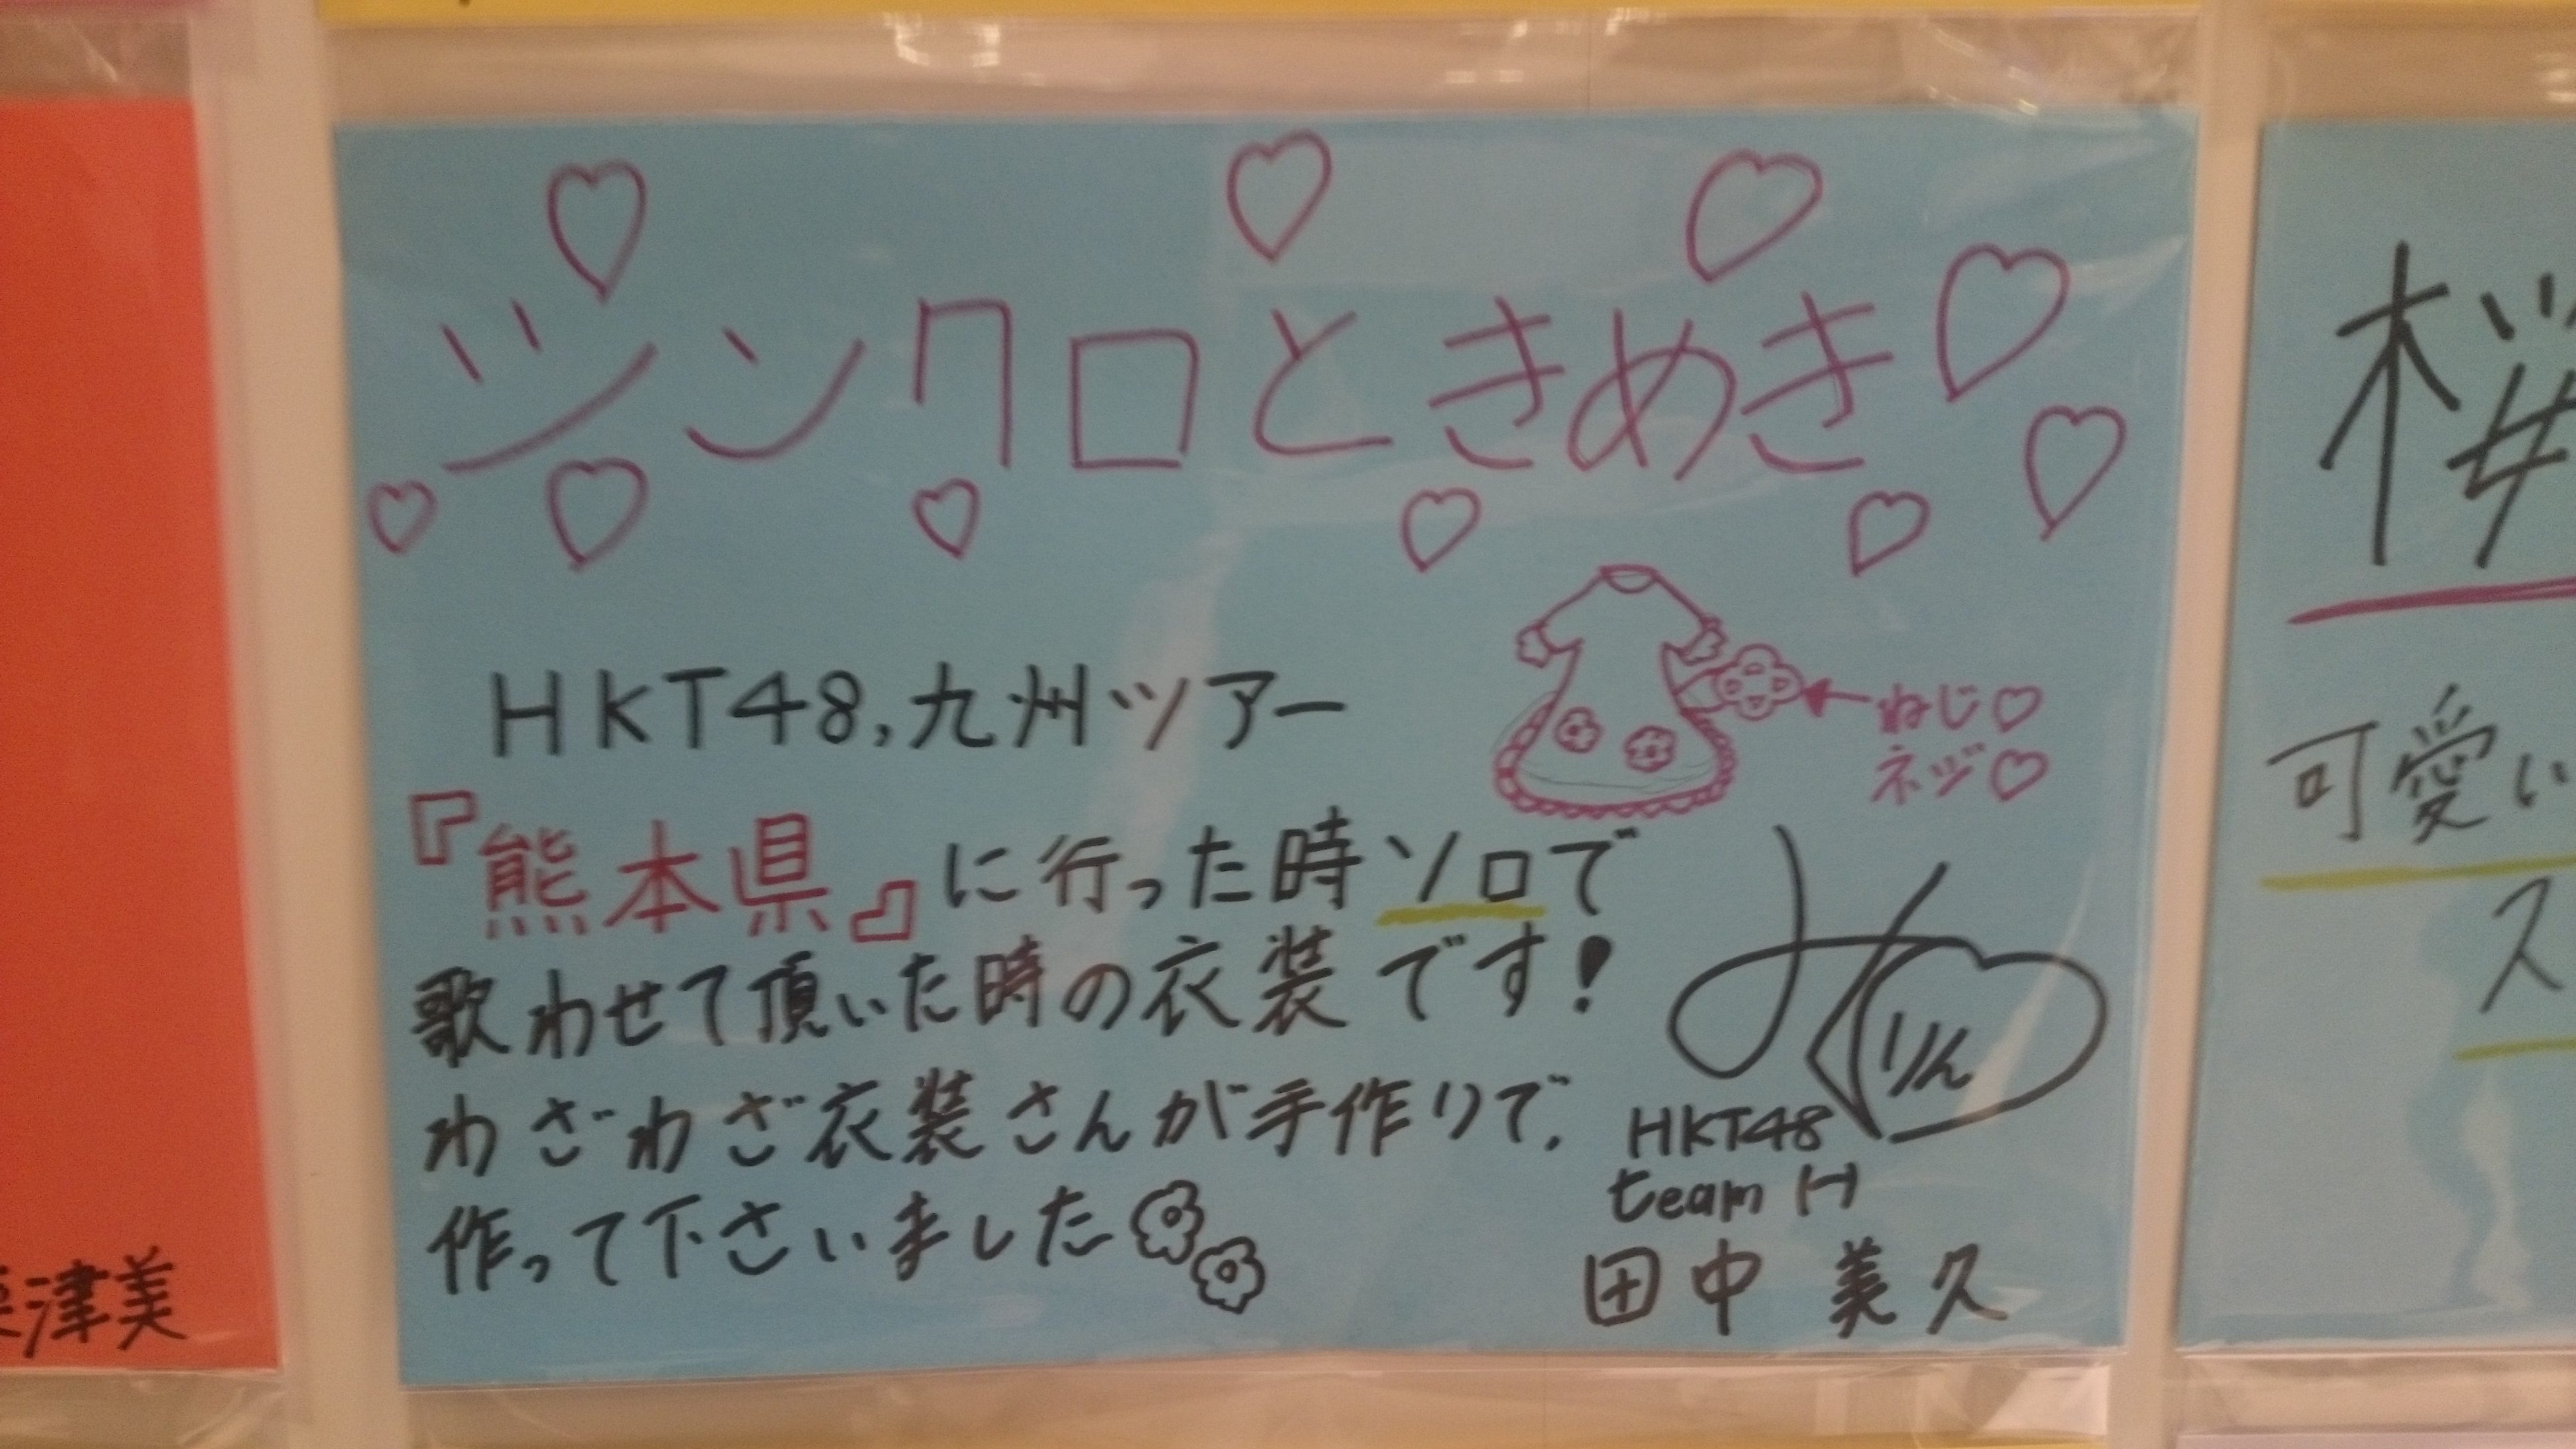 シンクロときめき
HKT48,九州ツアー
ねじ♡
ネジ♡
『熊本県』に行った時ソロで
歌わせて頂いた時の衣装です!
わざわざ衣装さんが手作りで、
作って下さいました
りん
HKT48
team H
田中美久
津美
桜
可愛い
ス